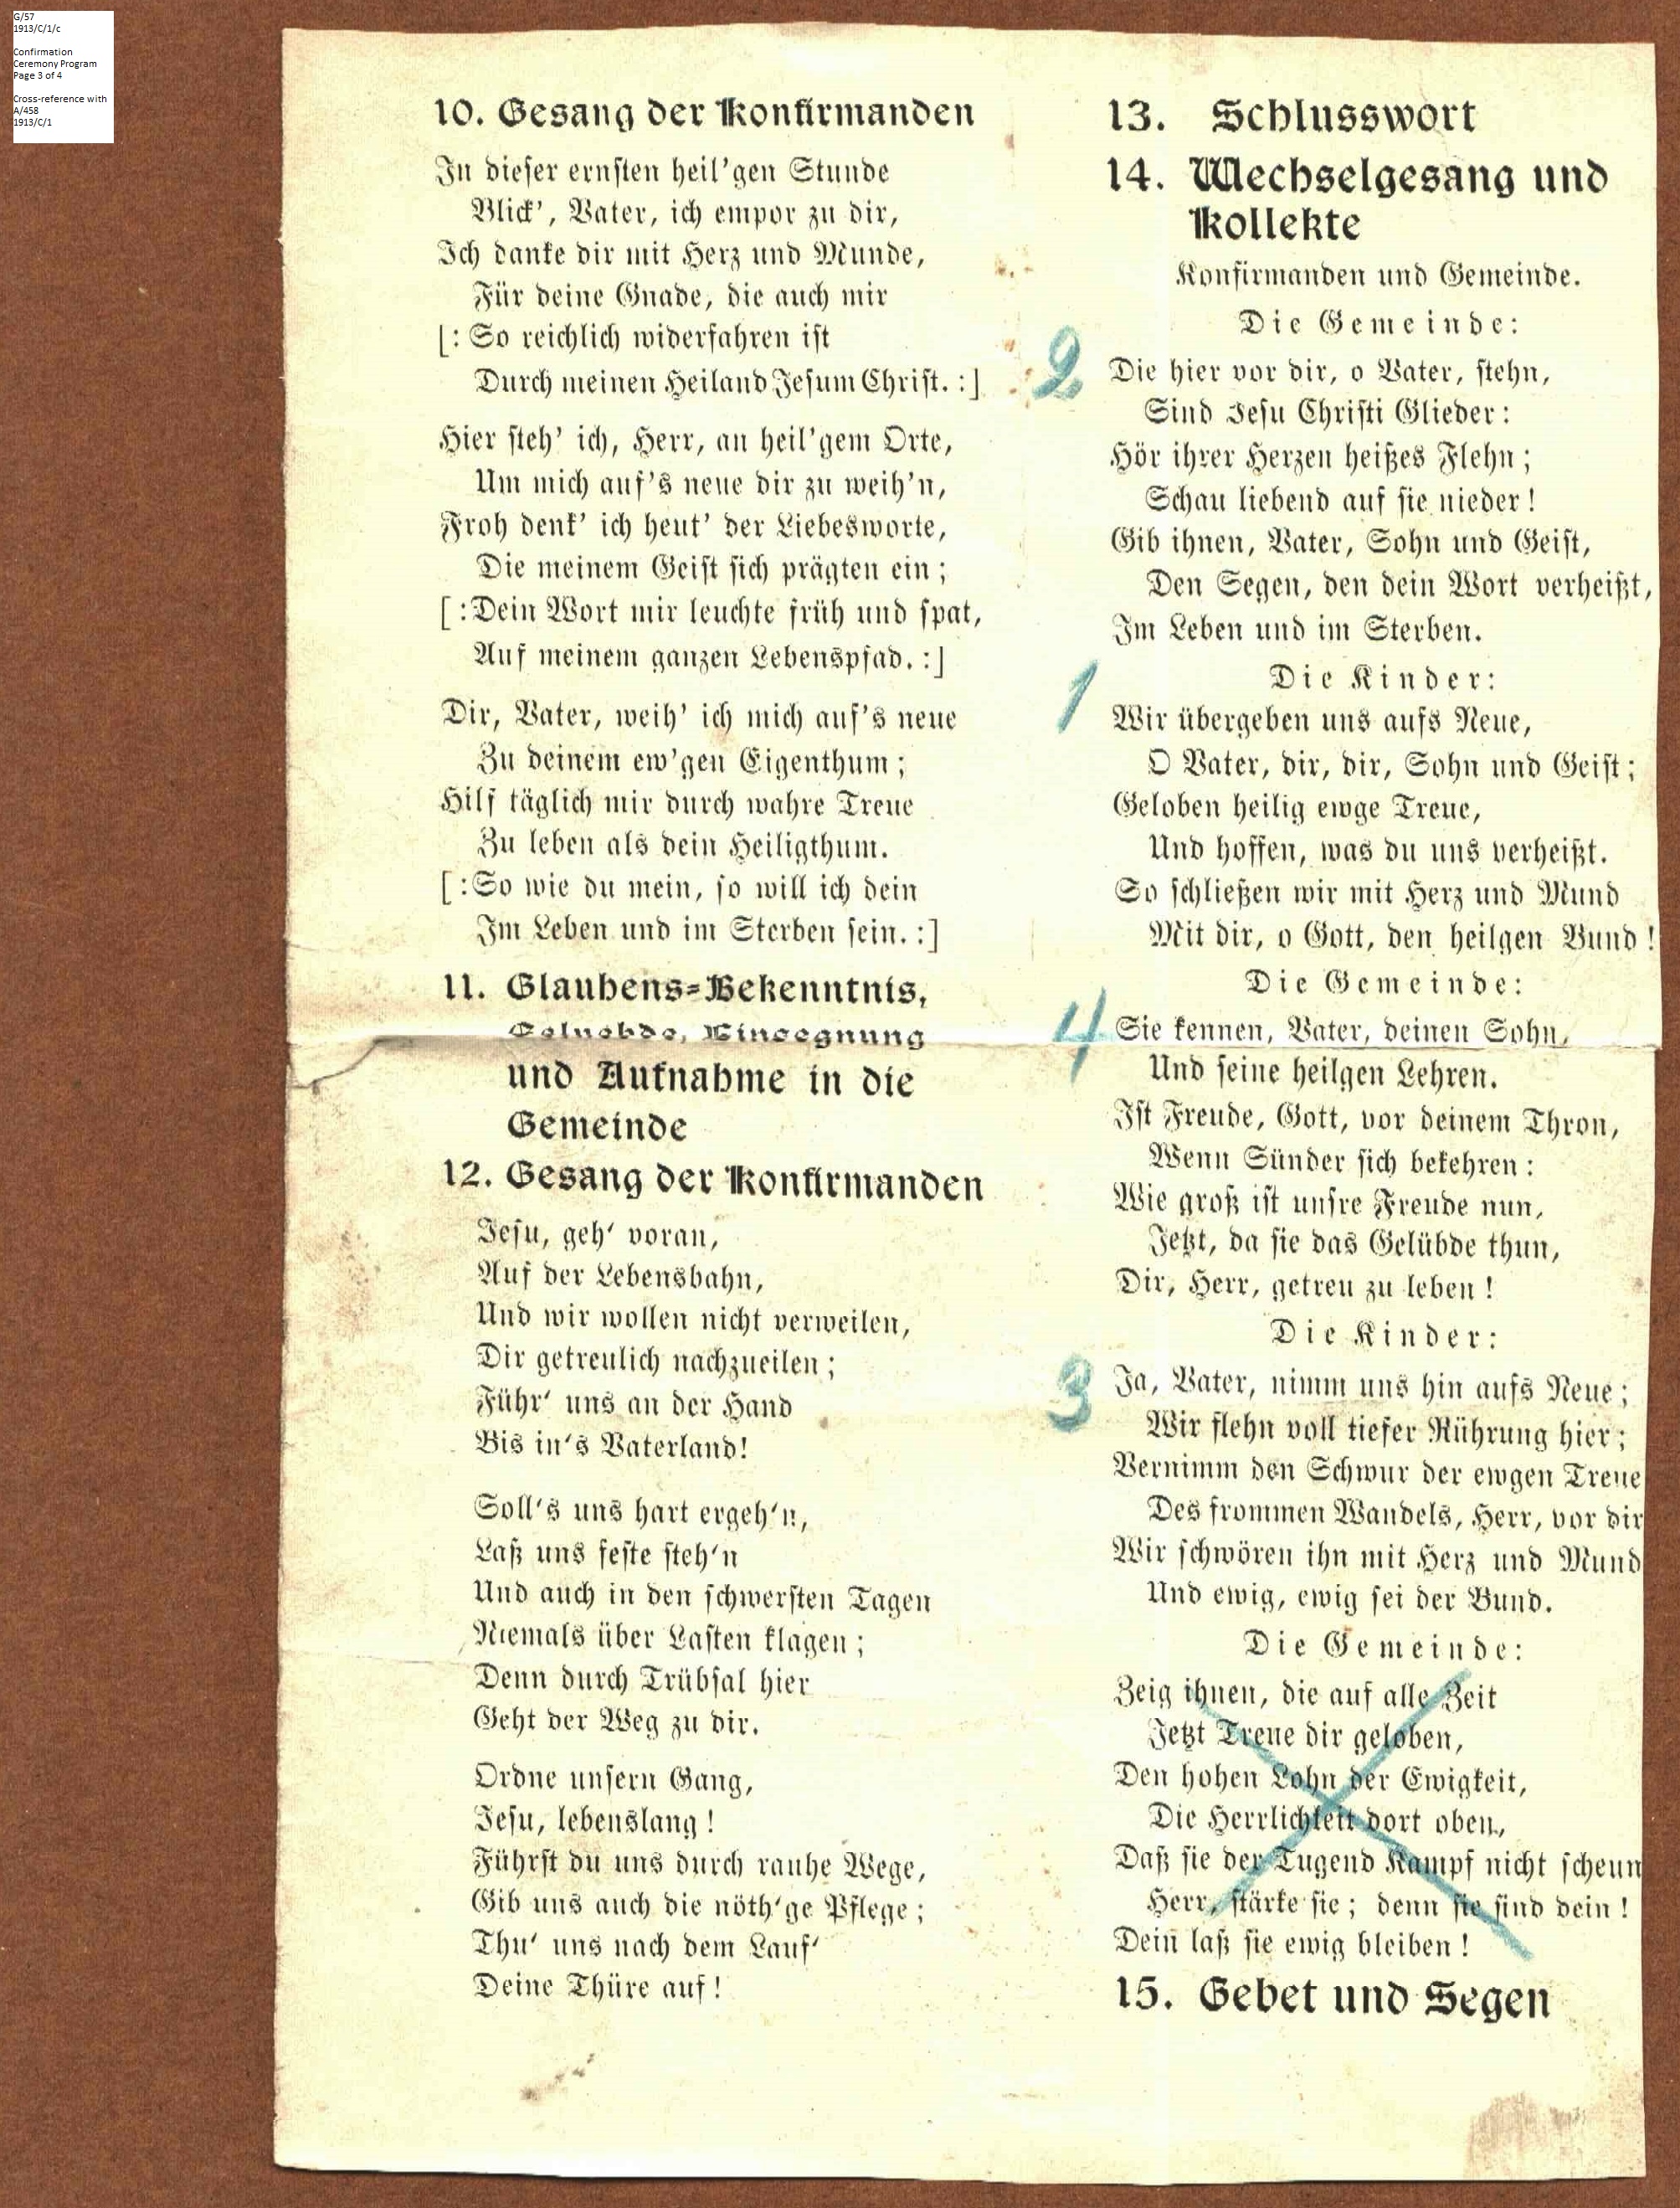 G/57
1913/C/1/c
Confirmation
Ceremony Program
Page 3 of 4
Cross-reference with
A/458
1913/C/1
10. Gesang der Konfirmanden
In dieser ernsten heil'gen Stunde
Blick', Vater, ich empor zu dir,
Ich danke dir mit Herz und Munde,
Für deine Gnade, die auch mir
[: So reichlich widerfahren ist
Durch meinen Heiland Jesum Christ. :]
Hier steh' ich, Herr, an heil'gem Orte,
Um mich auf's neue dir zu weih'n,
Froh denk' ich heut' der Liebesworte,
Die meinem Geist sich prägten ein;
[: Dein Wort mir leuchte früh und spat,
Auf meinem ganzen Lebenspfad. :]
Dir, Vater, weih' ich mich auf's neue
Zu deinem ew'gen Eigenthum;
Hilf täglich mir durch wahre Treue
Zu leben als dein Heiligthum.
[: So wie du mein, so will ich dein
Im Leben und im Sterben sein. :]
11. Glaubens=Bekenntnis,
Geluebde, Einsegnung
und Aufnahme in die
Gemeinde
12. Gesang der Konfirmanden
Jesu, geh' voran,
Auf der Lebensbahn,
Und wir wollen nicht verweilen,
Dir getreulich nachzueilen;
Führ' uns an der Hand
Bis in's Vaterland!
Soll's uns hart ergeh'n,
Laß uns feste steh'n
Und auch in den schwersten Tagen
Niemals über Lasten klagen;
Denn durch Trübsal hier
Geht der Weg zu dir.
Ordne unsern Gang,
Jesu, lebenslang!
Führst du uns durch rauhe Wege,
Gib uns auch die nöth'ge Pflege;
Thu' uns nach dem Lauf'
Deine Thüre auf!
13. Schlusswort
14. Wechselgesang und
Kollekte
Konfirmanden und Gemeinde.
Die Gemeinde:
2 Die hier vor dir, o Vater, stehn,
Sind Jesu Christi Glieder:
Hör ihrer Herzen heißes Flehn;
Schau liebend auf sie nieder!
Gib ihnen, Vater, Sohn und Geist,
Den Segen, den dein Wort verheißt,
Im Leben und im Sterben.
Die Kinder:
1 Wir übergeben uns aufs Neue,
O Vater, dir, dir, Sohn und Geist;
Geloben heilig ewge Treue,
Und hoffen, was du uns verheißt.
So schließen wir mit Herz und Mund
Mit dir, o Gott, den heilgen Bund!
Die Gemeinde:
4 Sie kennen, Vater, deinen Sohn,
Und seine heilgen Lehren.
Ist Freude, Gott, vor deinem Thron,
Wenn Sünder sich bekehren:
Wie groß ist unsre Freude nun,
Jetzt, da sie das Gelübde thun,
Dir, Herr, getreu zu leben!
Die Kinder:
3 Ja, Vater, nimm uns hin aufs Neue;
Wir flehn voll tiefer Rührung hier;
Vernimm den Schwur der ewgen Treue
Des frommen Wandels, Herr, vor dir
Wir schwören ihn mit Herz und Mund
Und ewig, ewig sei der Bund.
Die Gemeinde:
Zeig ihnen, die auf alle Zeit
Jetzt Treue dir geloben,
Den hohen Lohn der Ewigkeit,
Die Herrlichkeit dort oben,
Daß sie der Tugend Kampf nicht scheun
Herr, stärke sie; denn sie sind dein!
Dein laß sie ewig bleiben!
15. Gebet und Segen